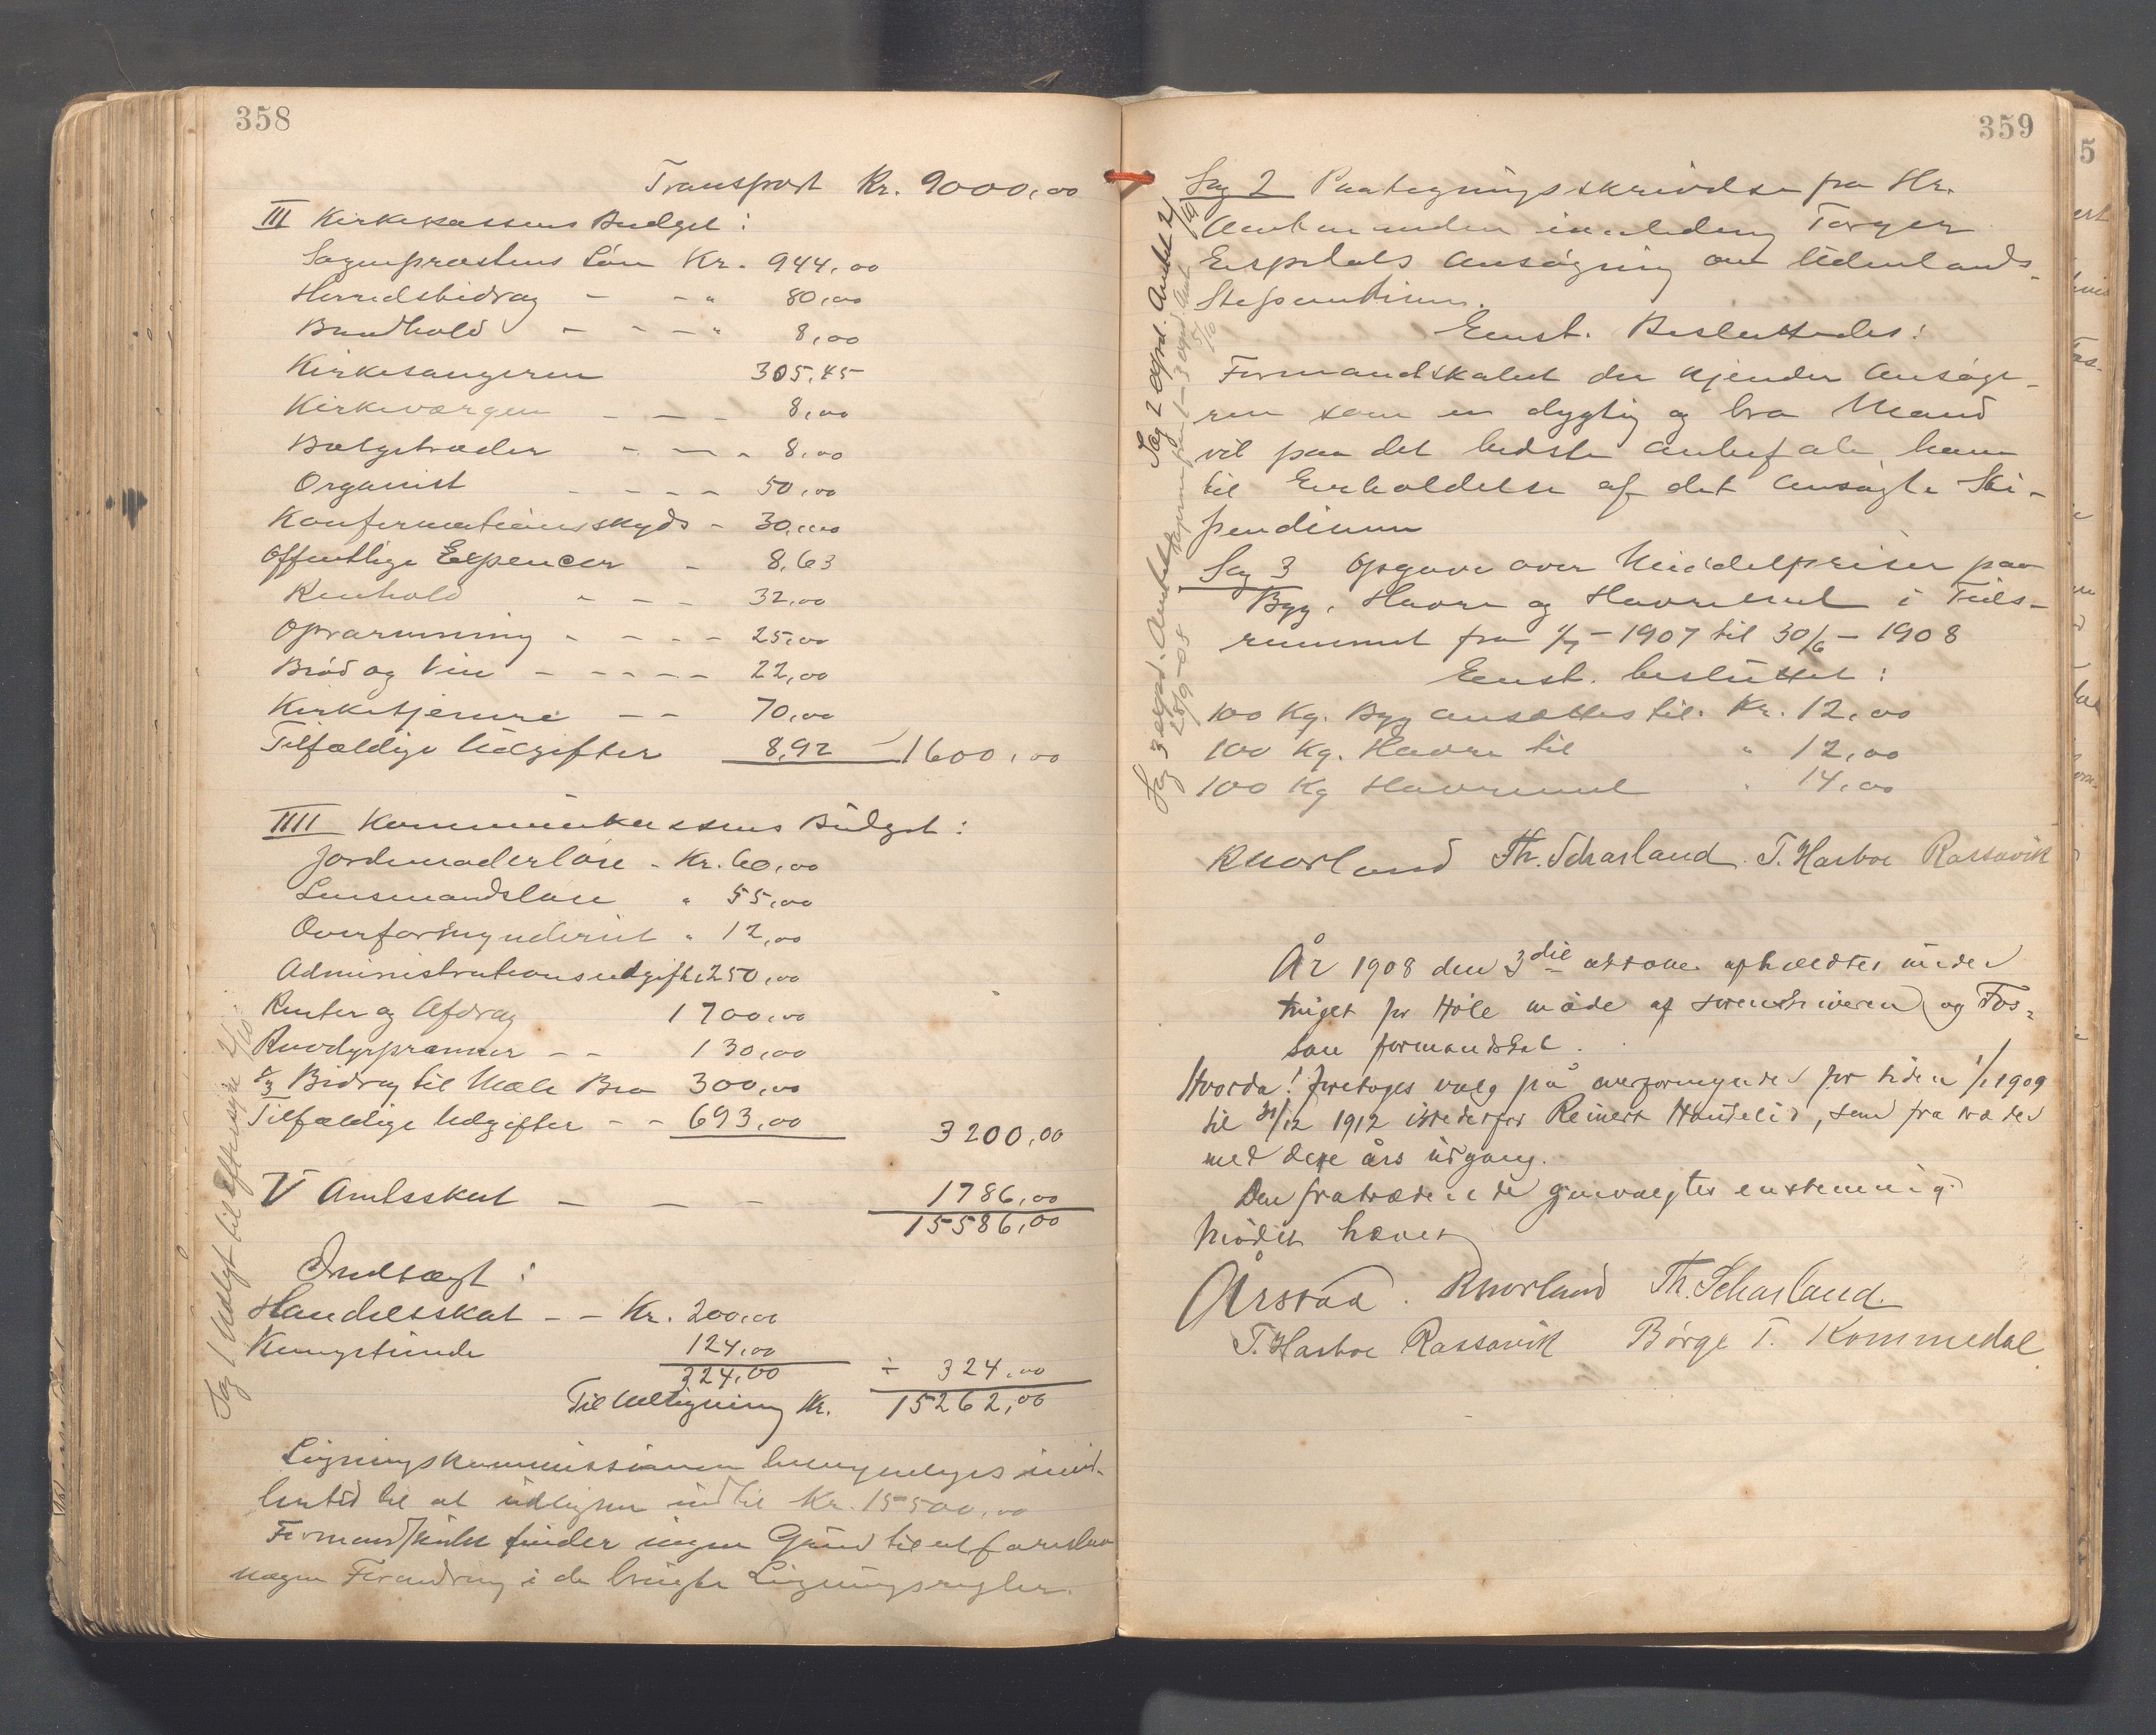 358
Transport Kr. 9000,00
III Kirkekassens Budget:
Sogneprestens Løn Kr. 944,00
Herredsbidrag - - " 80,00
Brødhold - - - " 8,00
Kirkesangeren 305,45
Kirkeværgen - - - 8,00
Bælgetræder - - - 8,00
Organist - - - - 50,00
Konfirmationsskyds - 30,00
Offentlige Expencer - 8,63
Renhold - - - 32,00
Opvarmning - - - - 25,00
Brød og Vin - - - - - 22,00
Kirketjenere - - 70,00
Tilfældige Udgifter 8,92 1600,00
IIII Kommunekassens Budget:
Jordemoderløn - Kr. 60,00
Lensmandsløn " 55,00
Overformynderiet " 12,00
Administrationsudgifter 1250,00
Renter og Afdrag 1700,00
Rovdyrpræmier - - 130,00
Bidrag til Mæle Bro 300,00
Tilfældige Udgifter - - 693,00
3200,00
V Amtsskat - - - 1786,00
15586,00
Indtægt:
Handelsskat - - Kr. 200,00
Kongetiende 124,00
324,00 ÷ 324,00
Til Udligning Kr. 15262,00
Ligningskommissionen bemyndiges imid-
lertid til at udligne indtil Kr. 15500,00
Formandskabet finder ingen Grund til at foreslaa
nogen Forandring i de brugte Ligningsregler.
Sag 1 Udlagt til Eftersyn 2/10
359
Sag 2 Paategningsskrivelse fra Hr.
Amtmanden i anledning Torger
Espedals Ansøgning om Udenlands-
Stipendium.
Enst. Besluttedes:
Formandskabet der kjender Ansøge-
ren som en dygtig og bra Mand
vil paa det bedste anbefale ham
til Erholdelse af det ansøgte Sti-
pendium
Sag 3 Opgave over Middelpriser paa
Byg, Havre og Havremel i Tids-
rummet fra 1/7 - 1907 til 30/6 - 1908
Enst. besluttet:
100 Kg. Byg ansættes til. Kr. 12,00
100 Kg. Havre til " 12,00
100 Kg Havremel " 14,00
Th. Scharland. T. Harboe Rassavik
Sag 2 exped. Amtet 2/10
Sag 3 exped. Amtet 28/9-08
År 1908 den 3die oktober afholdtes møde i
tinget for Høle møde af sorenskriveren og Fos-
san formandskab.
Hvorda! foretoges valg på overformynder for tiden 1/1 1909
til 31/12 1912 istedetfor Reinert Haukelid, som fratræder
med dette års udgang.
Den fratrædende gjenvalgtes enstemmig.
Mødet hævet
Årstad. Th. Scharland.
T. Harboe Rassavik Børge T. Kommedal